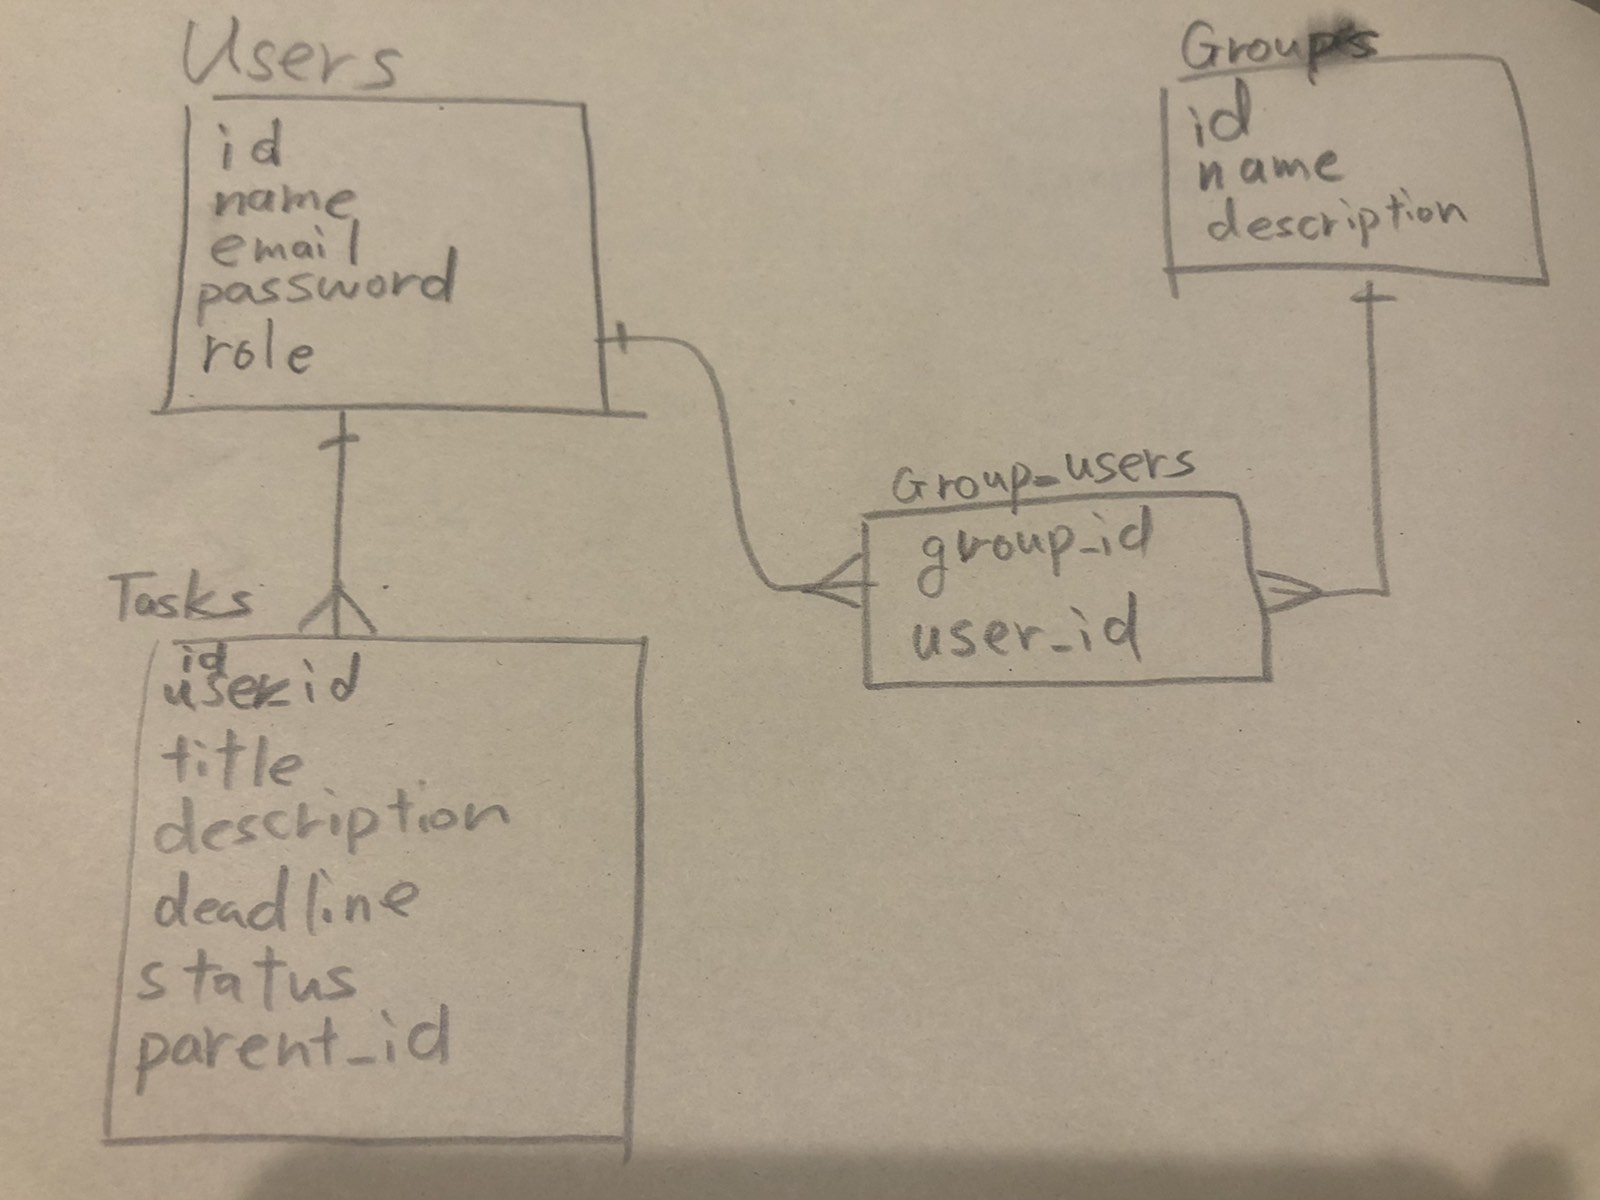 Users
id
name
email
password
role
Groups
id
name
description
Group_users
group_id
user_id
Tasks
id
user_id
title
description
deadline
status
parent_id